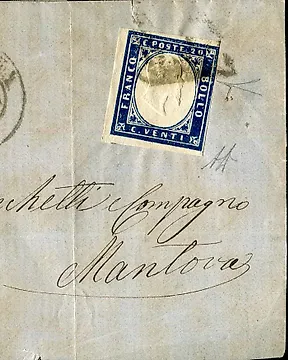 C. POSTE 20
FRANCO
BOLLO
C. VENTI
chetti Compagno
Mantova